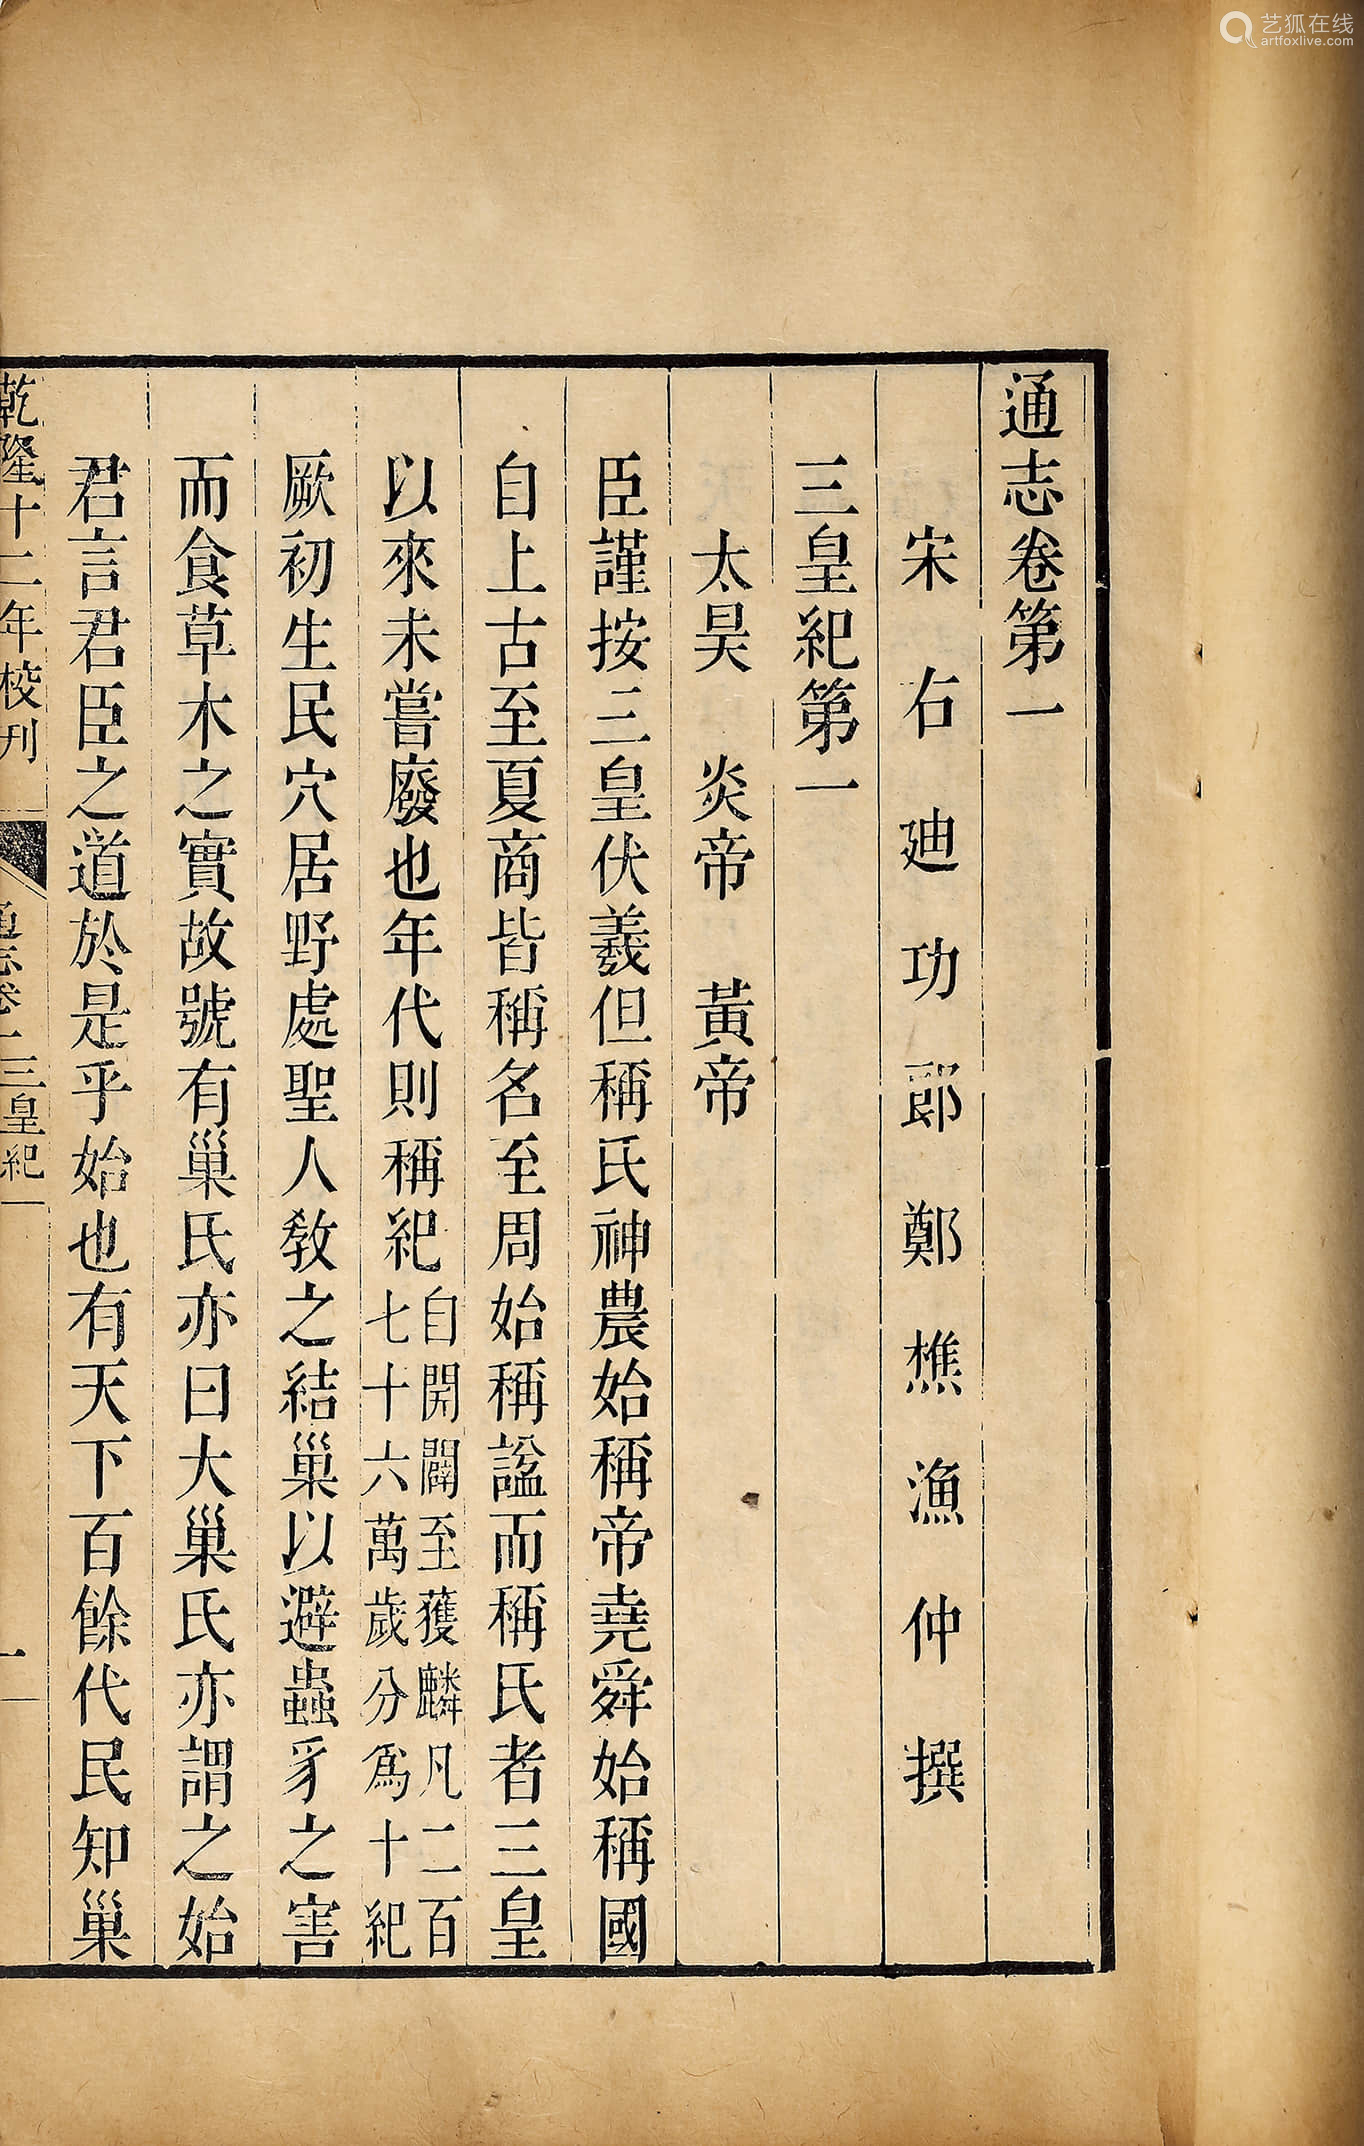 艺狐在线
artfoxlive.com
通志卷第一
宋右迪功郎鄭樵漁仲撰
三皇紀第一
太昊 炎帝 黃帝
臣謹按三皇伏羲但稱氏神農始稱帝堯舜始稱國
自上古至夏商皆稱名至周始稱諡而稱氏者三皇
以來未嘗廢也年代則稱紀自開闢至獲麟凡二百
七十六萬歲分爲十紀
厥初生民穴居野處聖人教之結巢以避蟲豸之害
而食草木之實故號有巢氏亦曰大巢氏亦謂之始
君言君臣之道於是乎始也有天下百餘代民知巢
乾隆十二年校刊
通志卷一三皇紀一
一